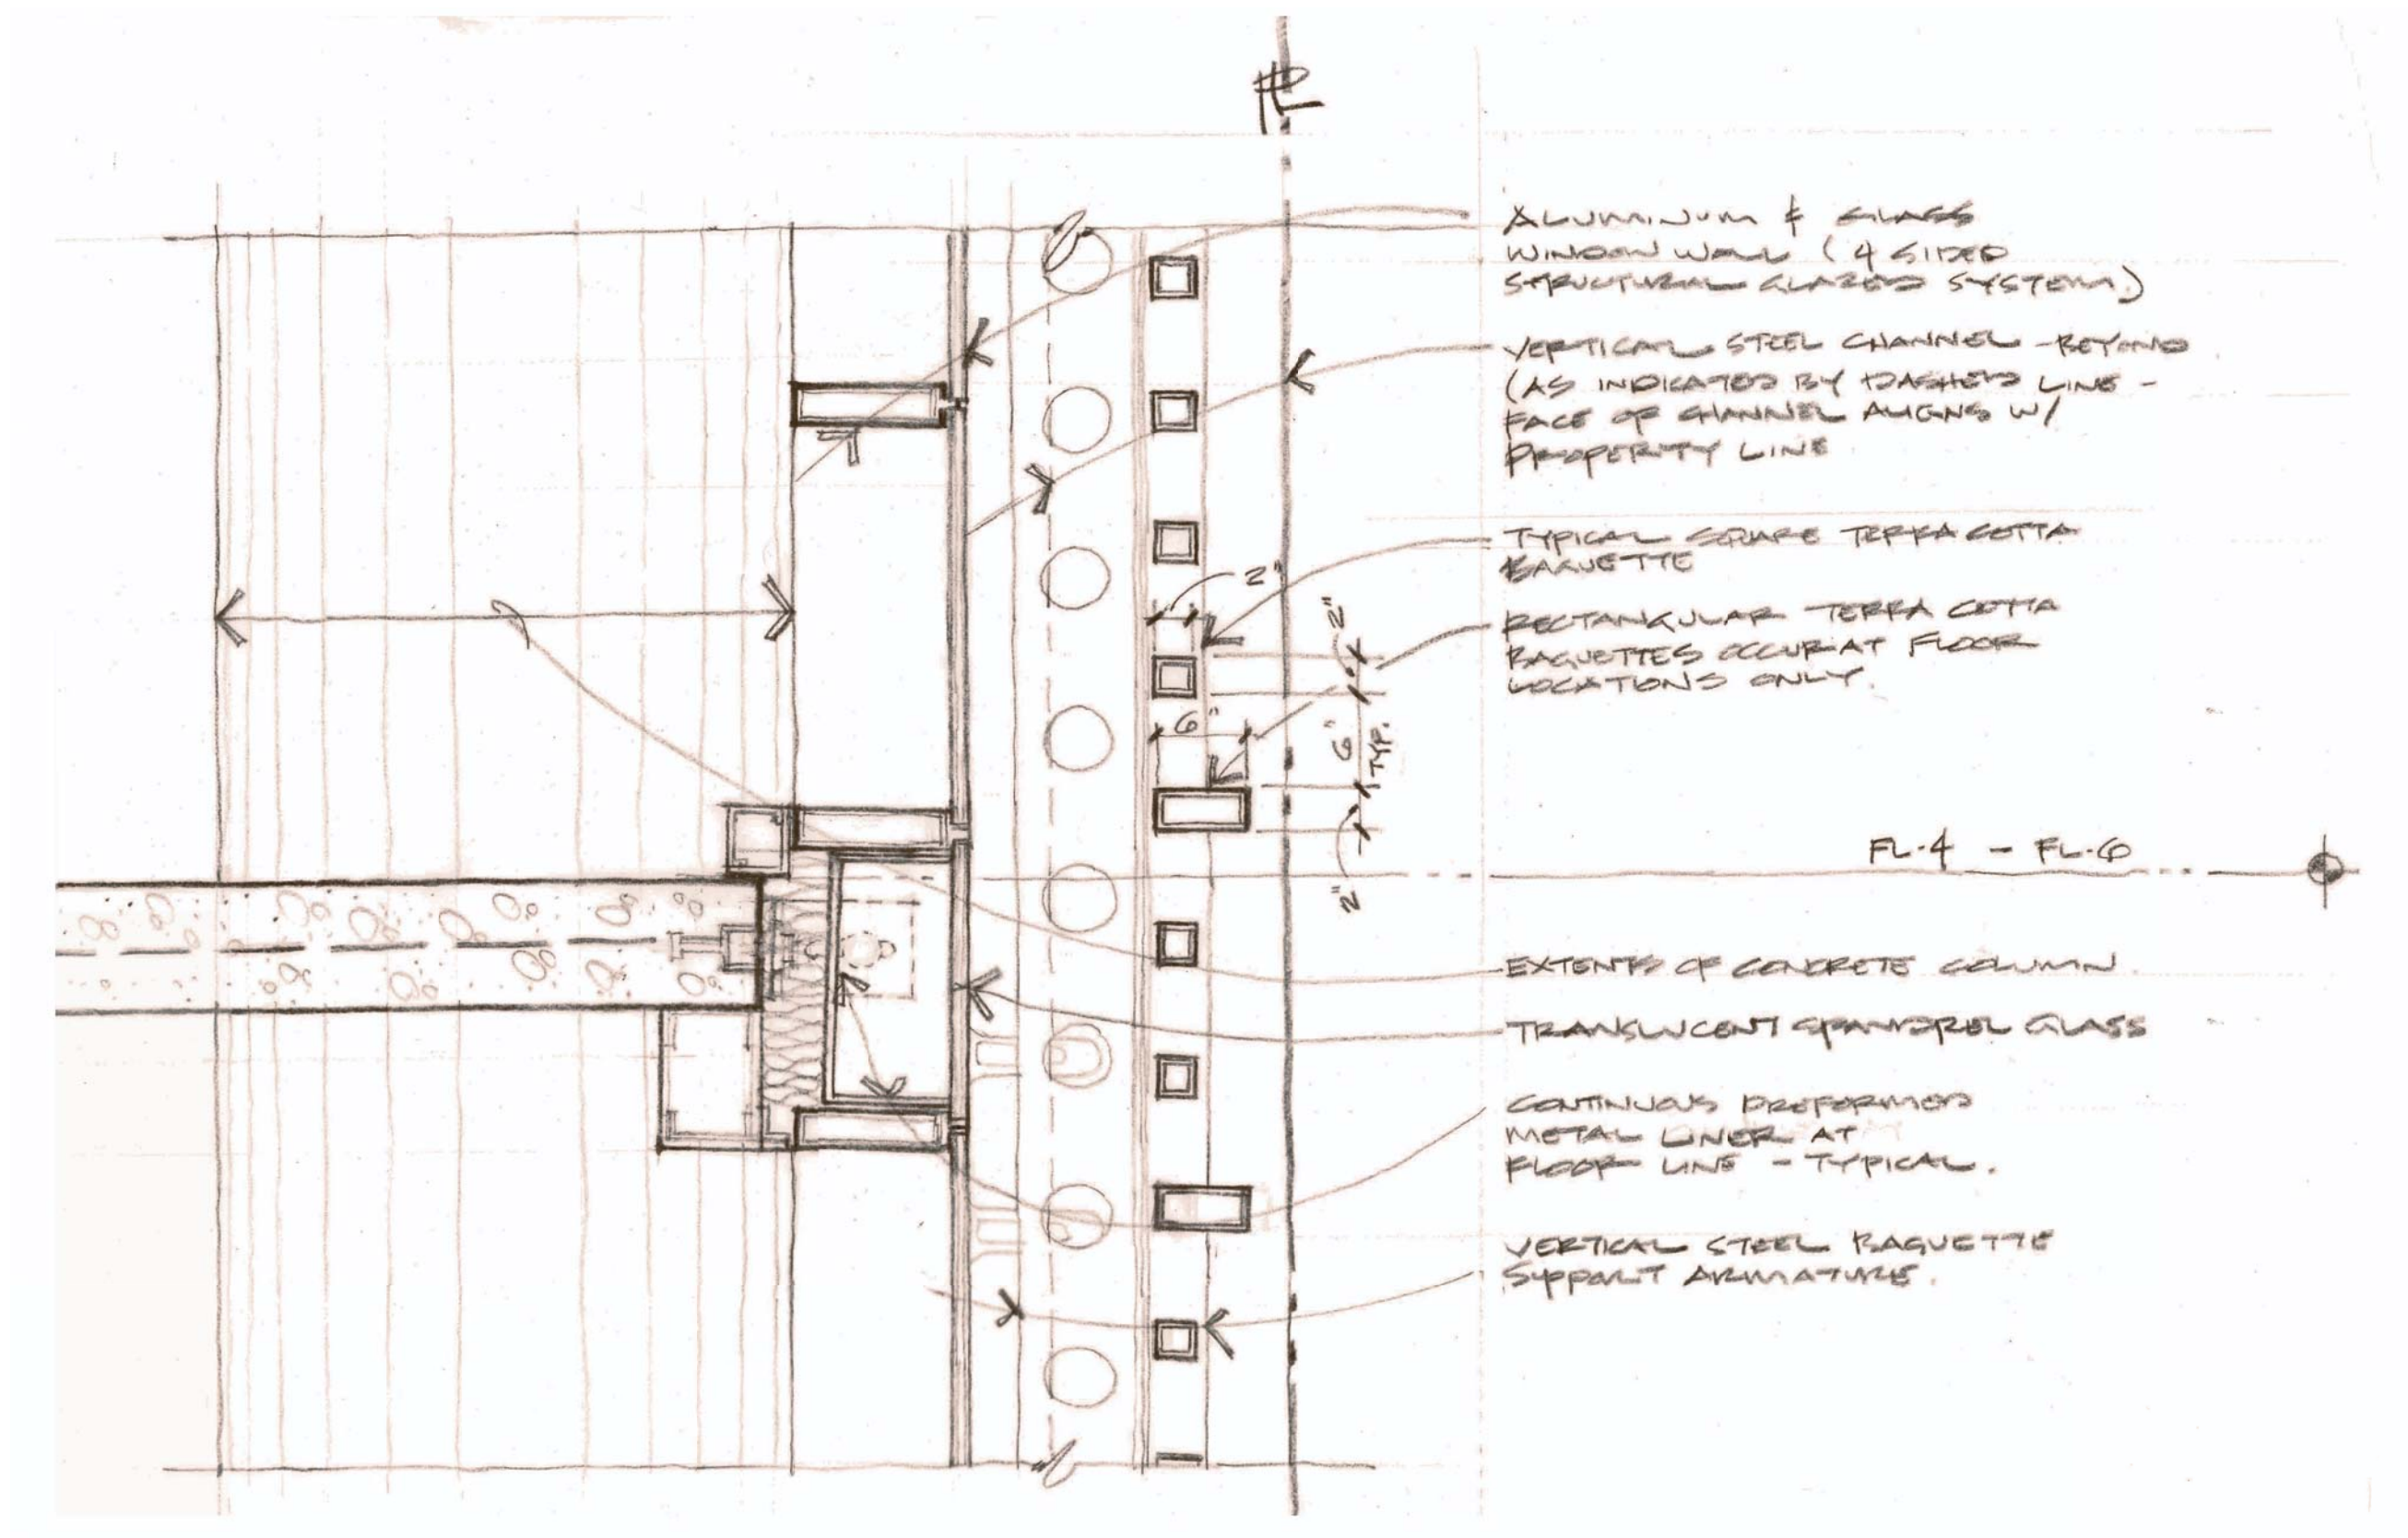 PL
ALUMINUM & GLASS
WINDOW WALL (4 SIDED
STRUCTURAL GLAZED SYSTEM)
VERTICAL STEEL CHANNEL - BEYOND
(AS INDICATED BY DASHED LINE -
FACE OF CHANNEL ALIGNS W/
PROPERTY LINE
TYPICAL SQUARE TERRA COTTA
BAGUETTE
2"
2"
RECTANGULAR TERRA COTTA
BAGUETTES OCCUR AT FLOOR
LOCATIONS ONLY.
6"
6"
TYP.
2"
FL.4 - FL.6
EXTENTS OF CONCRETE COLUMN
TRANSLUCENT SPANDREL GLASS
CONTINUOUS PREFORMED
METAL LINER AT
FLOOR LINE - TYPICAL.
VERTICAL STEEL BAGUETTE
SUPPORT ARMATURE.